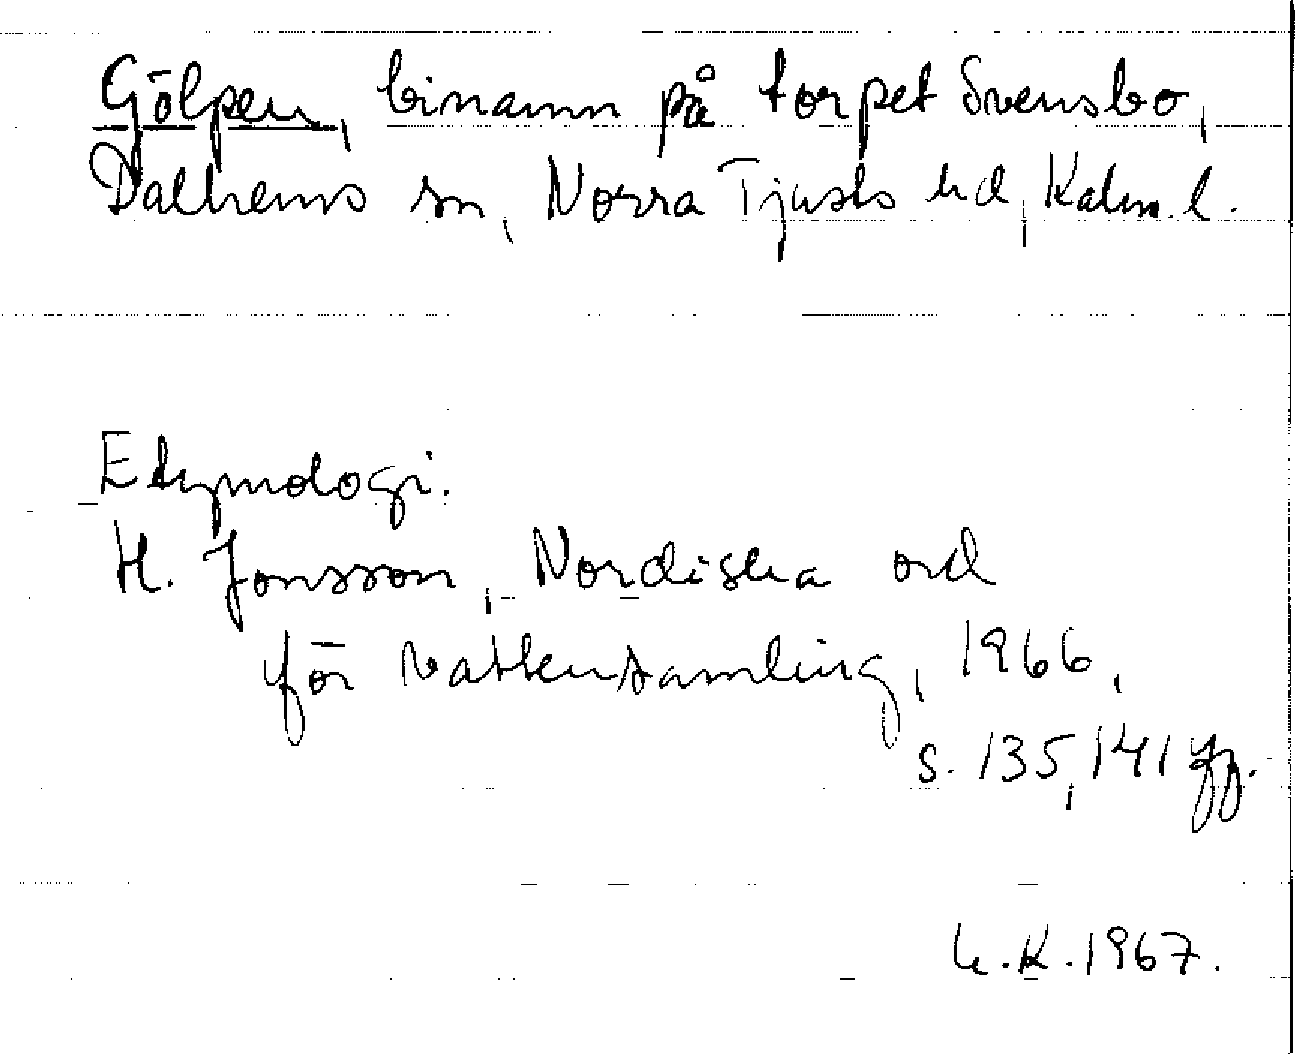 Gölpen, binamn på torpet Svensbo,
Dalhems sn, Norra Tjusts hd, Kalm. l.
Etymologi.
H. Jonsson, Nordiska ord
för vattensamling, 1966,
s. 135, 141 ff.
K. 1967.